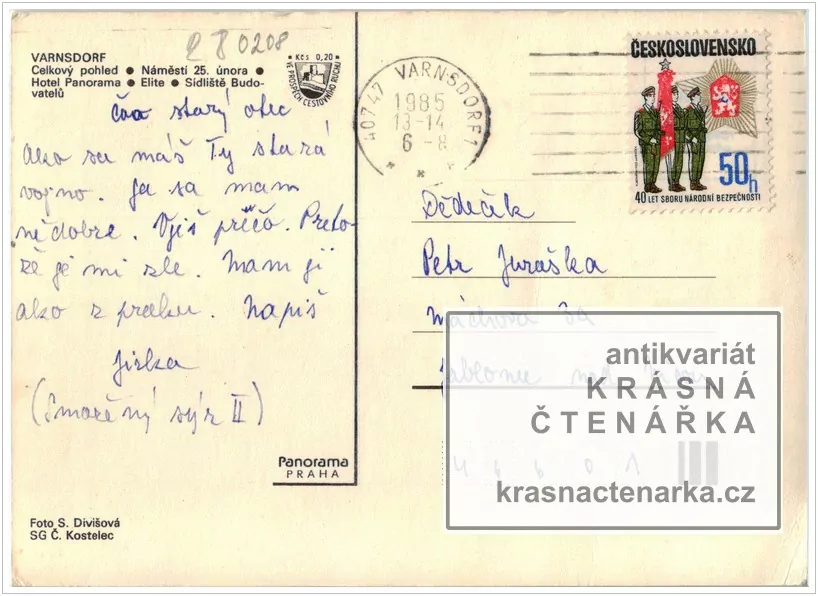 280208
VARNSDORF
Celkový pohled ● Náměstí 25. února ●
Hotel Panorama ● Elite ● Sídliště Budo-
vatelů
Kčs 0,20
VE PROSPĚCH CESTOVNÍHO RUCHU
407 47 VARNSDORF 1
1985
13-14
6 -8
ČESKOSLOVENSKO
50h
40 LET SBORU NÁRODNÍ BEZPEČNOSTI
čau starý otec
Ako sa máš Ty stará
vojno. Ja sa mam
nědobre. Vjiš príčo. Preto-
že je mi zle. Mam ji
ako z praku. Napiš
Jirka
(Smařený sýr II)
Dědeček
Petr Juraška
Máchova
Jablonec nad
46601
antikvariát
KRÁSNÁ
ČTENÁŘKA
krasnactenarka.cz
Panorama
PRAHA
Foto S. Divišová
SG Č. Kostelec